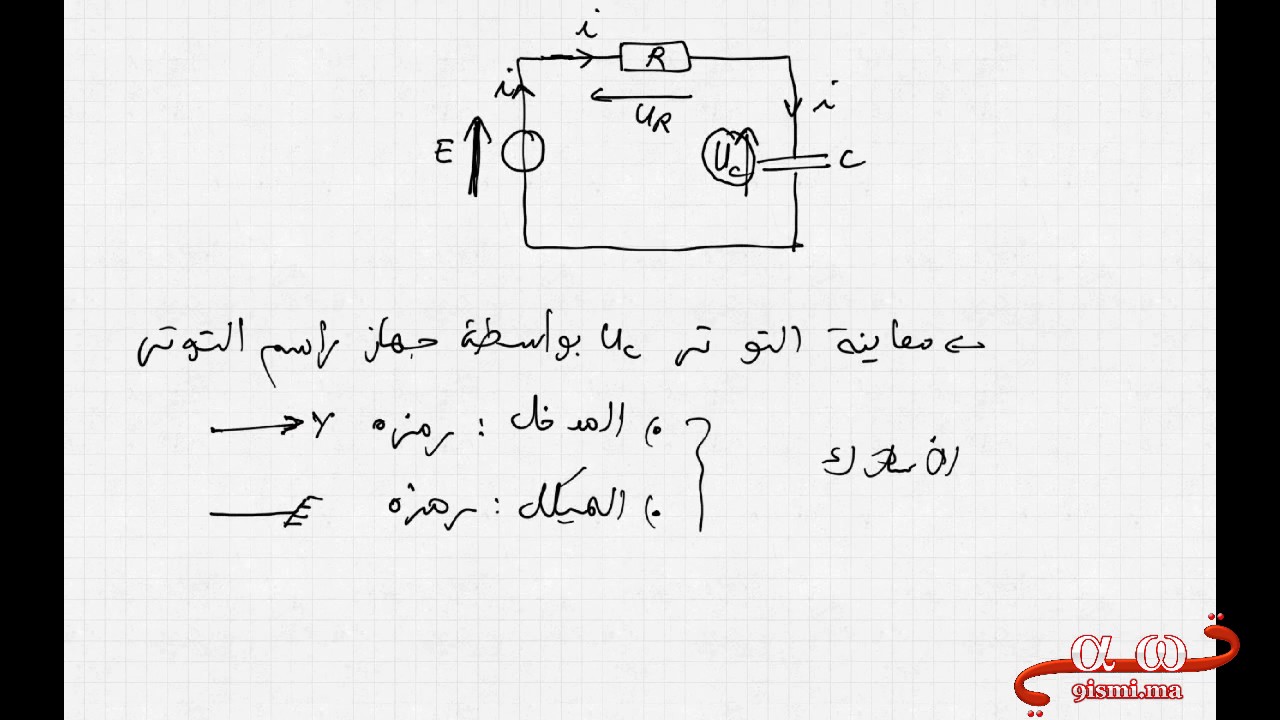 i
R
i
i
U_R
E
U_c
C
معاينة التوتر u_c بواسطة جهاز راسم التوتر
المدخل : رمزه Y
الهيكل : رمزه
قسمي
α ω
9ismi.ma